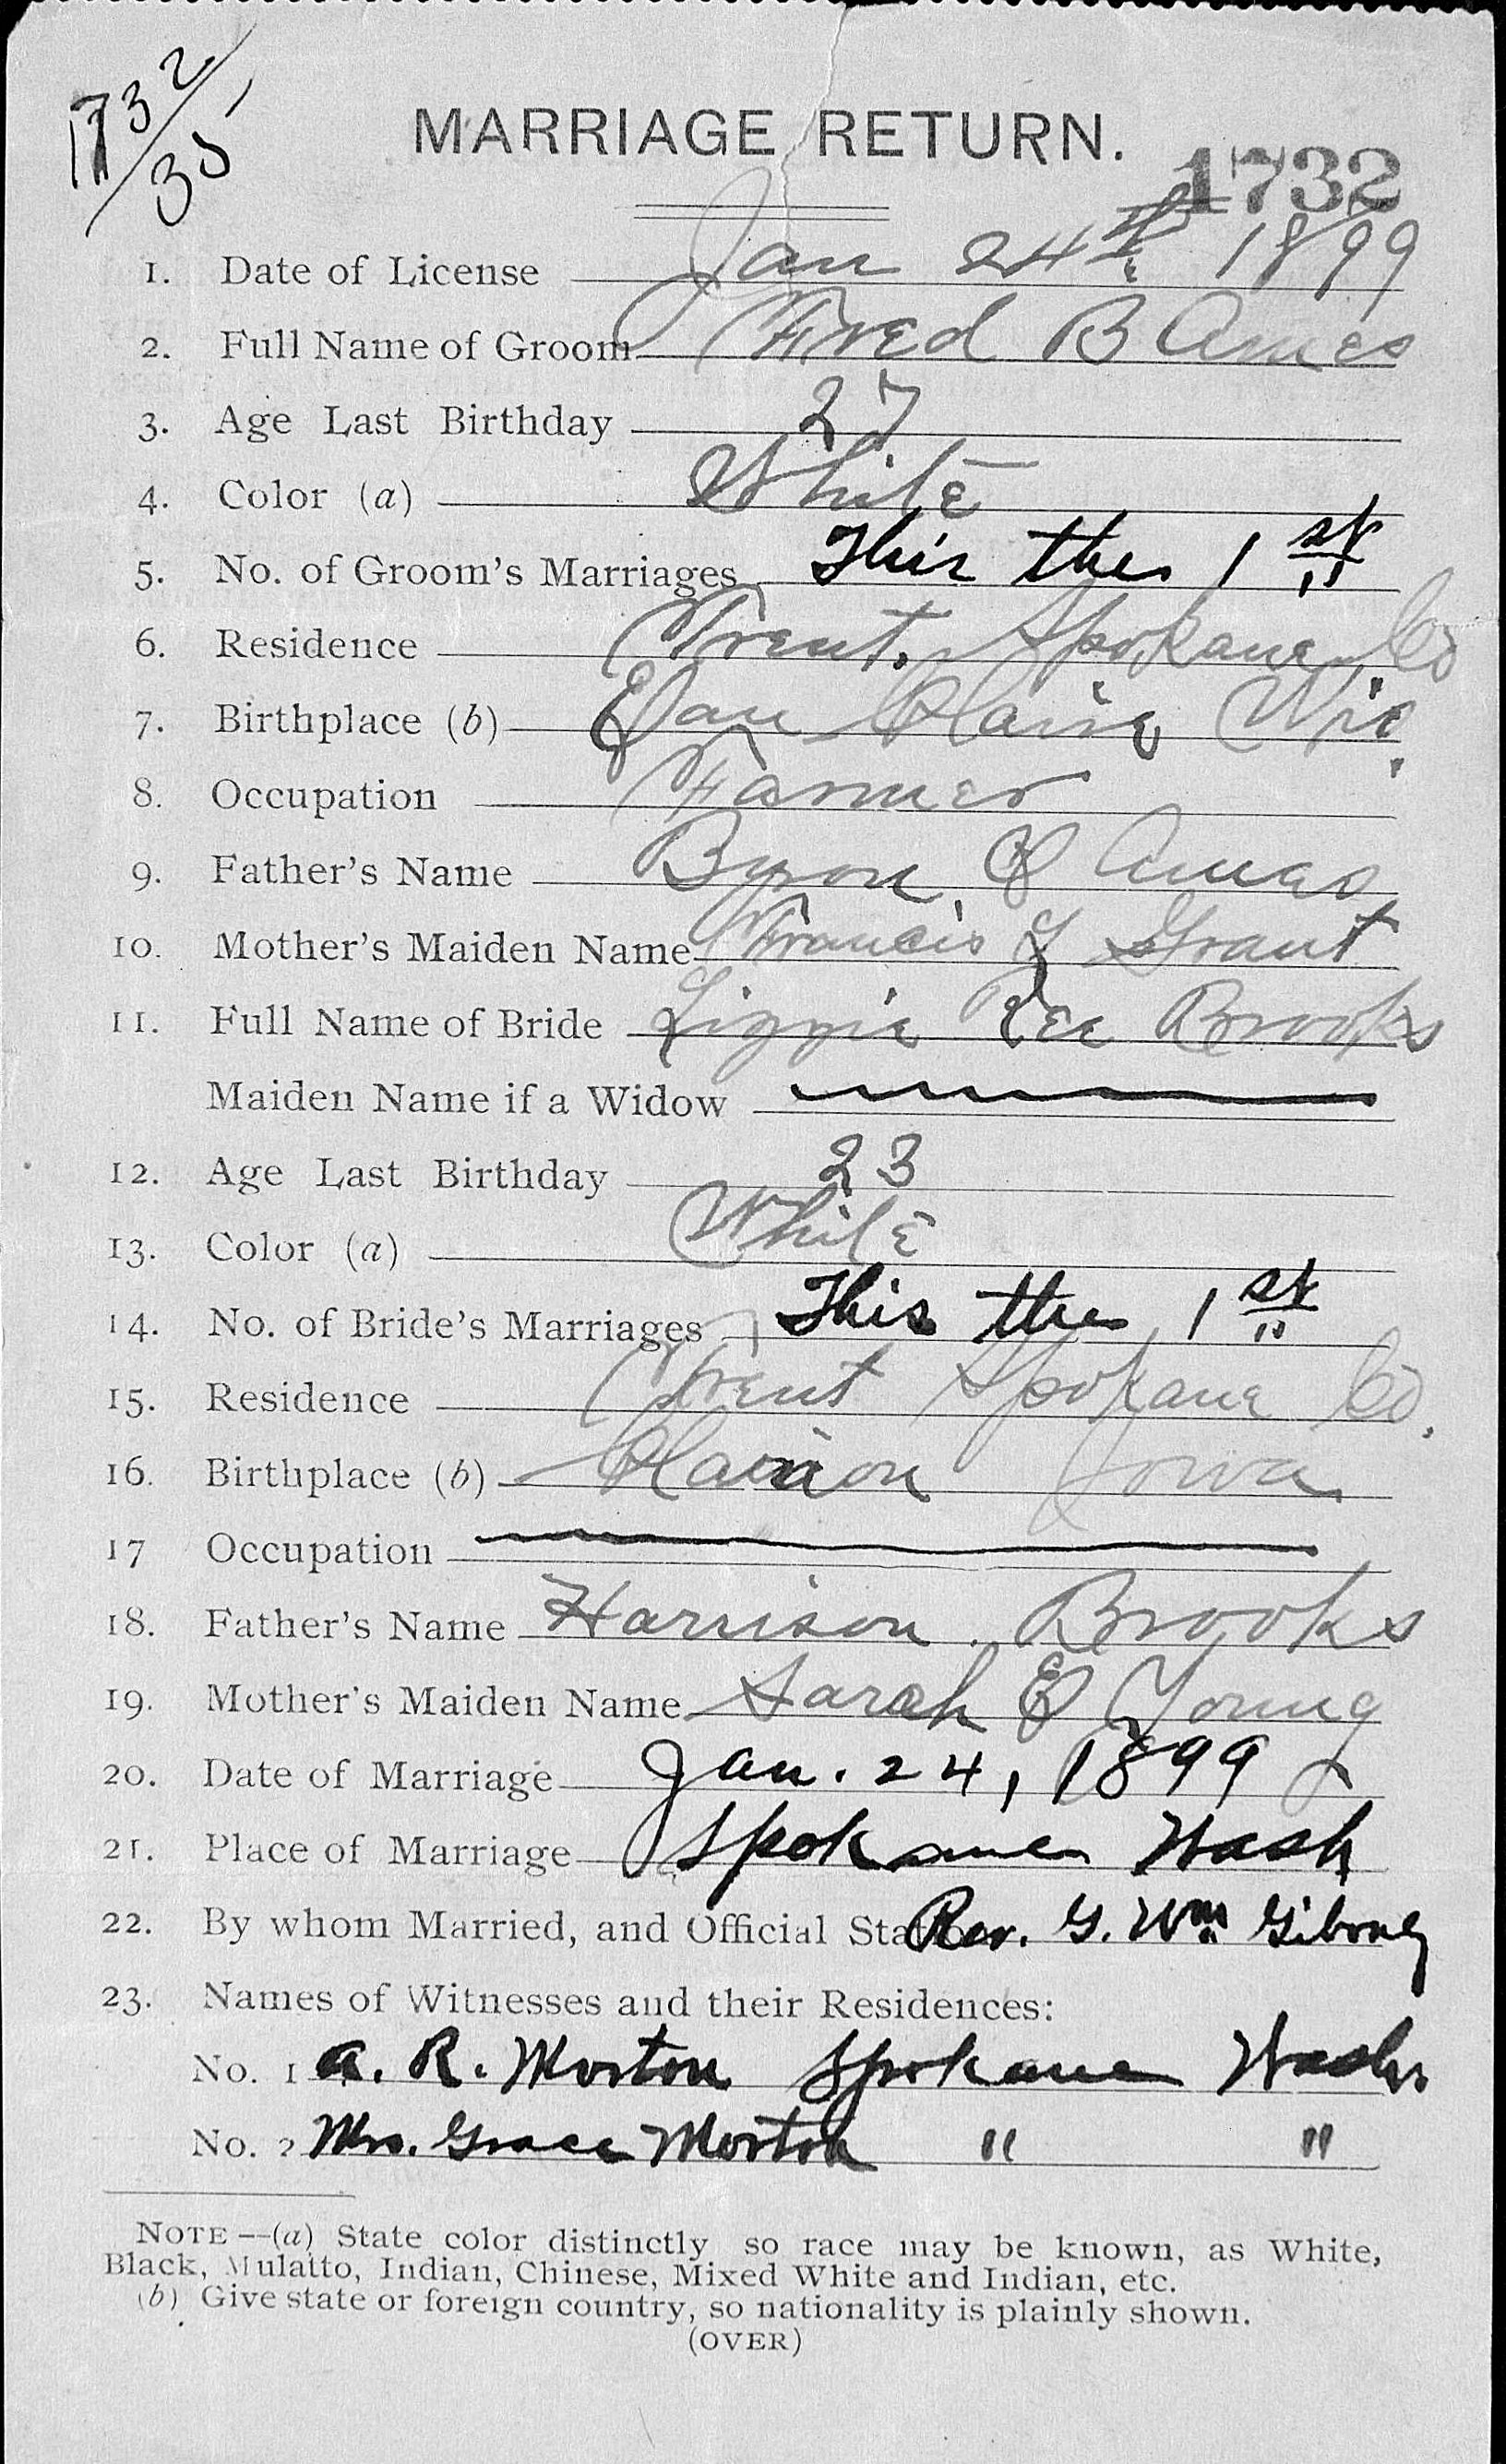 1732/35
MARRIAGE RETURN.
1732
1. Date of License Jan 24th 1899
2. Full Name of Groom Fred B Ames
3. Age Last Birthday 27
4. Color (a) White
5. No. of Groom's Marriages This the 1st
6. Residence Trent, Spokane Co
7. Birthplace (b) Eau Claire Wis.
8. Occupation Farmer
9. Father's Name Byron Ames
10. Mother's Maiden Name Francis Grant
11. Full Name of Bride Lizzie Lee Brooks
Maiden Name if a Widow
12. Age Last Birthday 23
13. Color (a) White
14. No. of Bride's Marriages This the 1st
15. Residence Trent Spokane Co.
16. Birthplace (b) Iowa
17 Occupation
18. Father's Name Harrison Brooks
19. Mother's Maiden Name Sarah E Young
20. Date of Marriage Jan. 24, 1899
21. Place of Marriage Spokane Wash
22. By whom Married, and Official Station Rev. G. Wm Giboney
23. Names of Witnesses and their Residences:
No. 1 A. R. Morton Spokane Wash.
No. 2 Mrs. Grace Morton " "
NOTE—(a) State color distinctly so race may be known, as White,
Black, Mulatto, Indian, Chinese, Mixed White and Indian, etc.
(b) Give state or foreign country, so nationality is plainly shown.
(OVER)